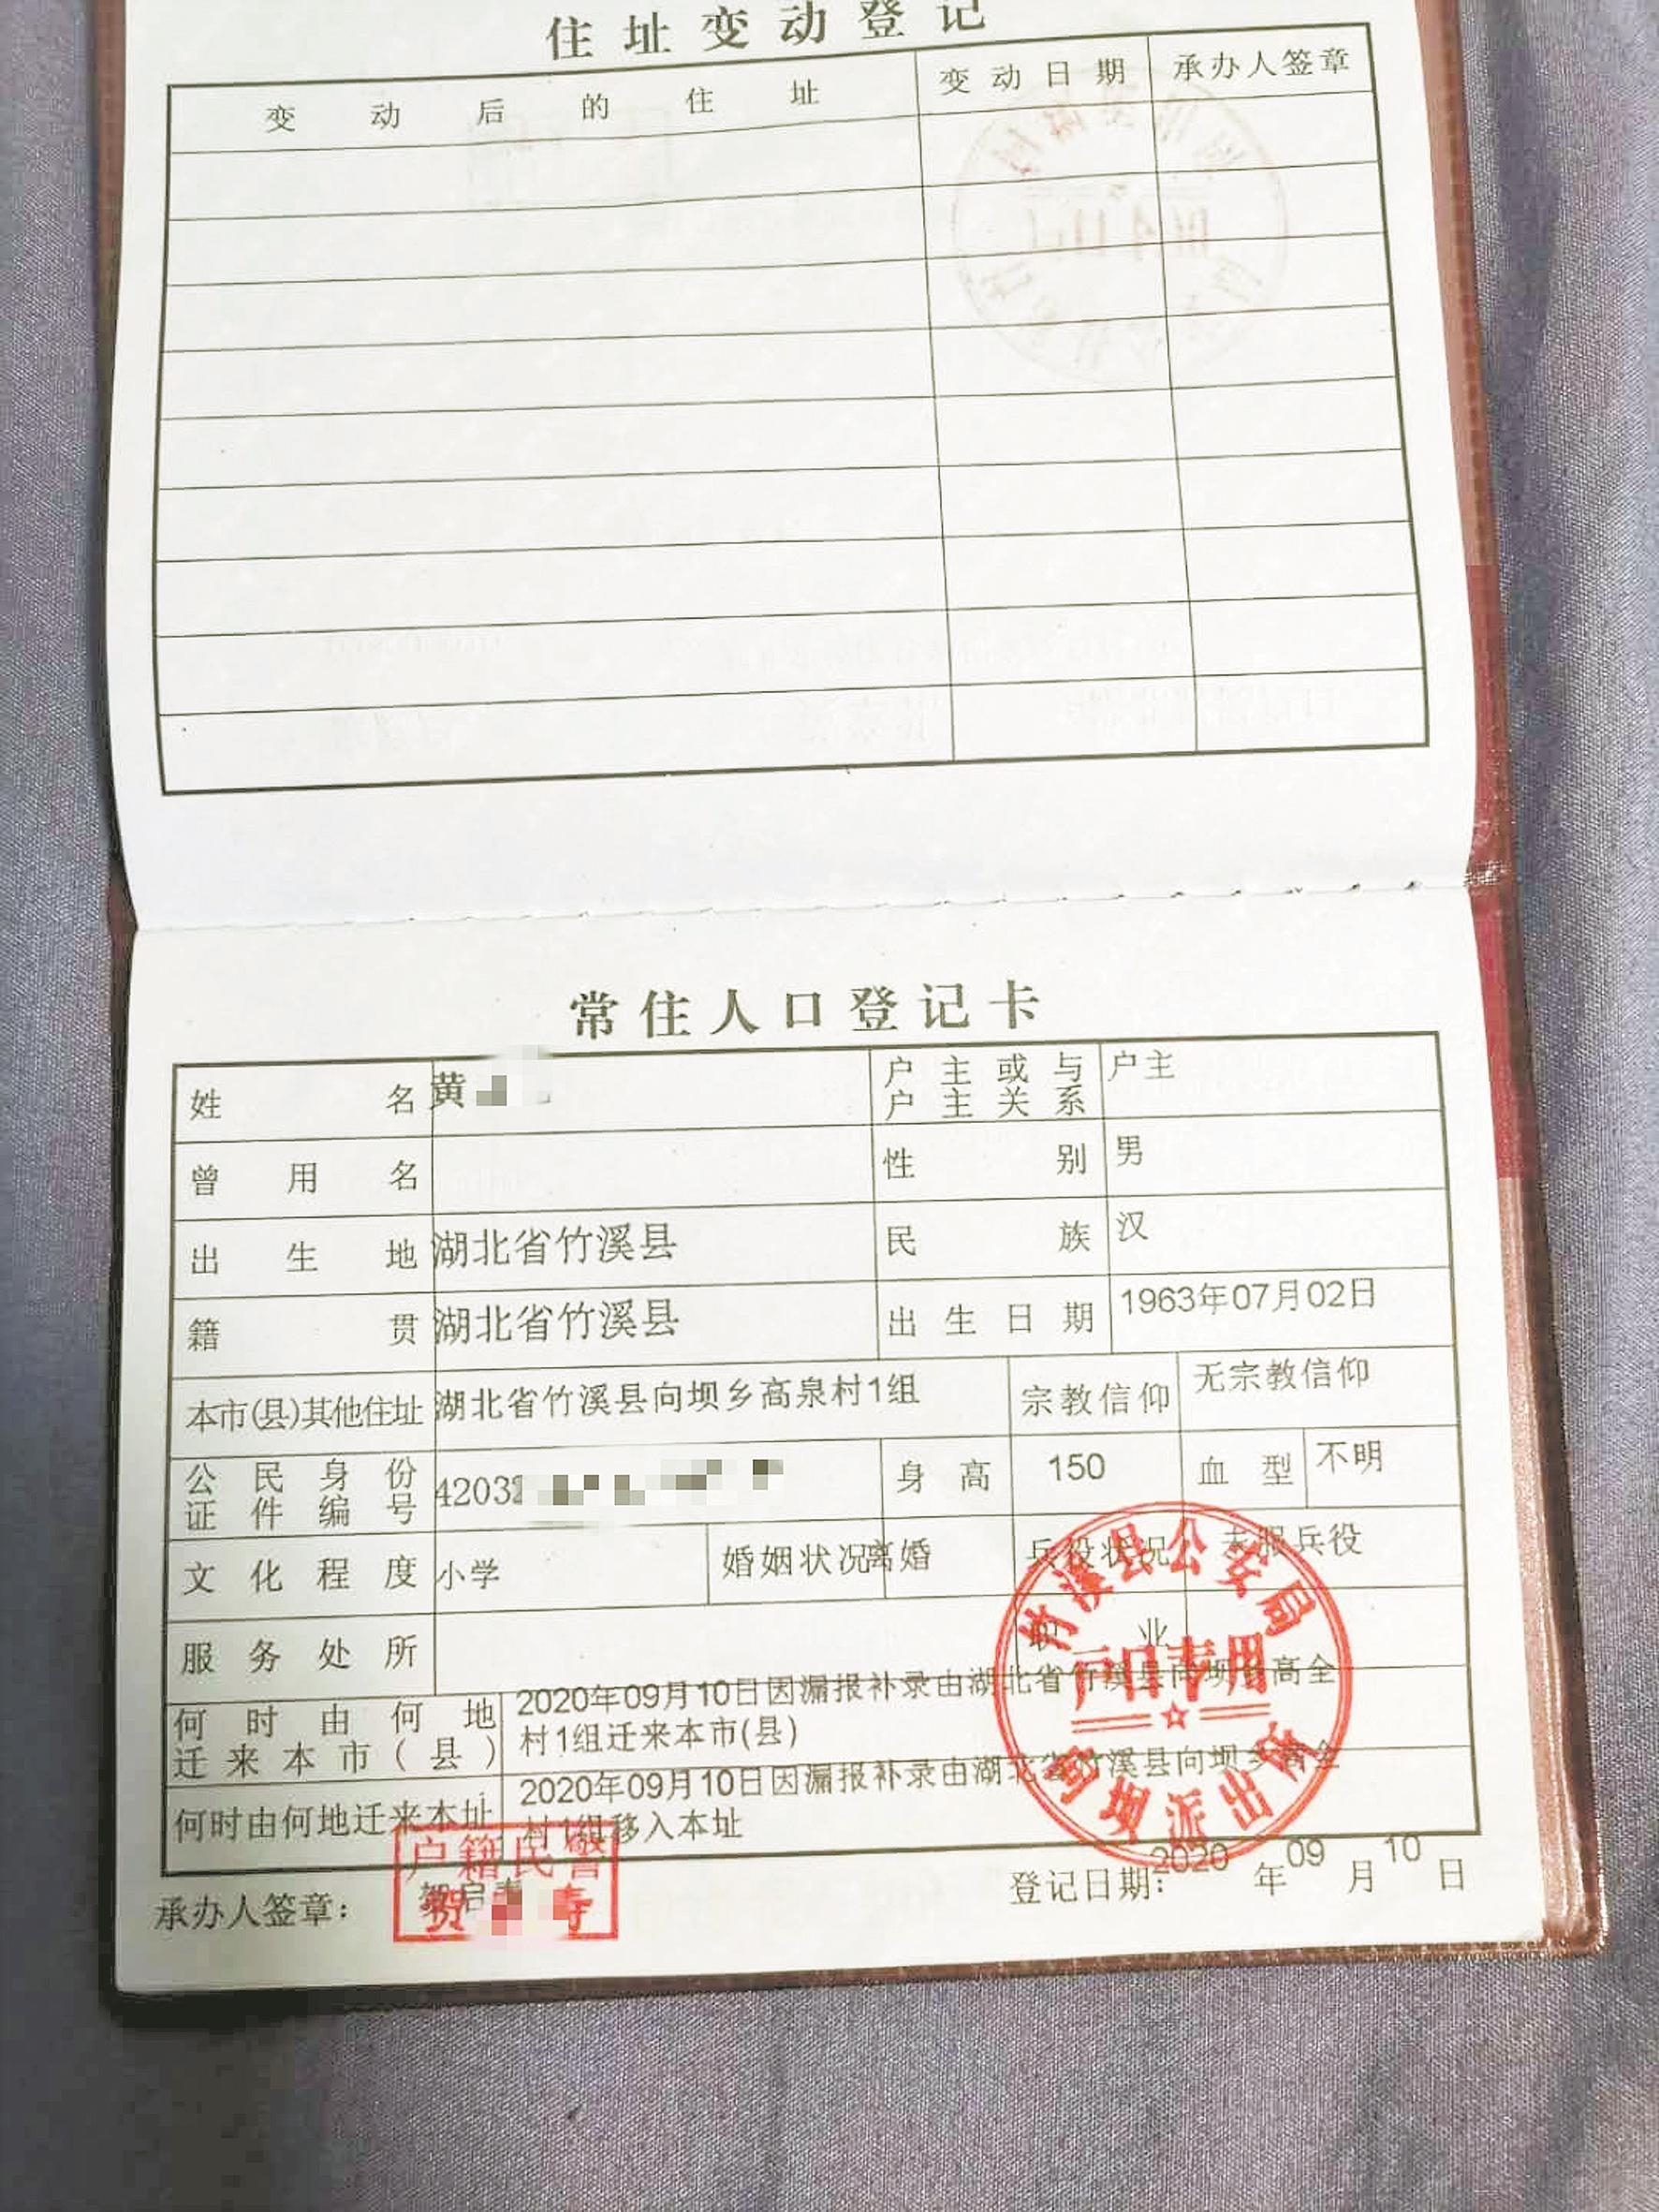 住址变动登记
变动后的住址 变动日期 承办人签章
常住人口登记卡
姓名 黄 户主或与户主关系 户主
曾用名 性别 男
出生地 湖北省竹溪县 民族 汉
籍贯 湖北省竹溪县 出生日期 1963年07月02日
本市(县)其他住址 湖北省竹溪县向坝乡高泉村1组 宗教信仰 无宗教信仰
公民身份证件编号 42032 身高 150 血型 不明
文化程度 小学 婚姻状况 离婚 兵役状况 未服兵役
服务处所 职业
何时由何地迁来本市(县) 2020年09月10日因漏报补录由湖北省竹溪县向坝乡高全
村1组迁来本市(县)
何时由何地迁来本址 2020年09月10日因漏报补录由湖北省竹溪县向坝乡高全
村1组移入本址
竹溪县公安局
户口专用
向坝派出所
户籍民警
贺 寿
承办人签章: 登记日期: 2020年09月10日